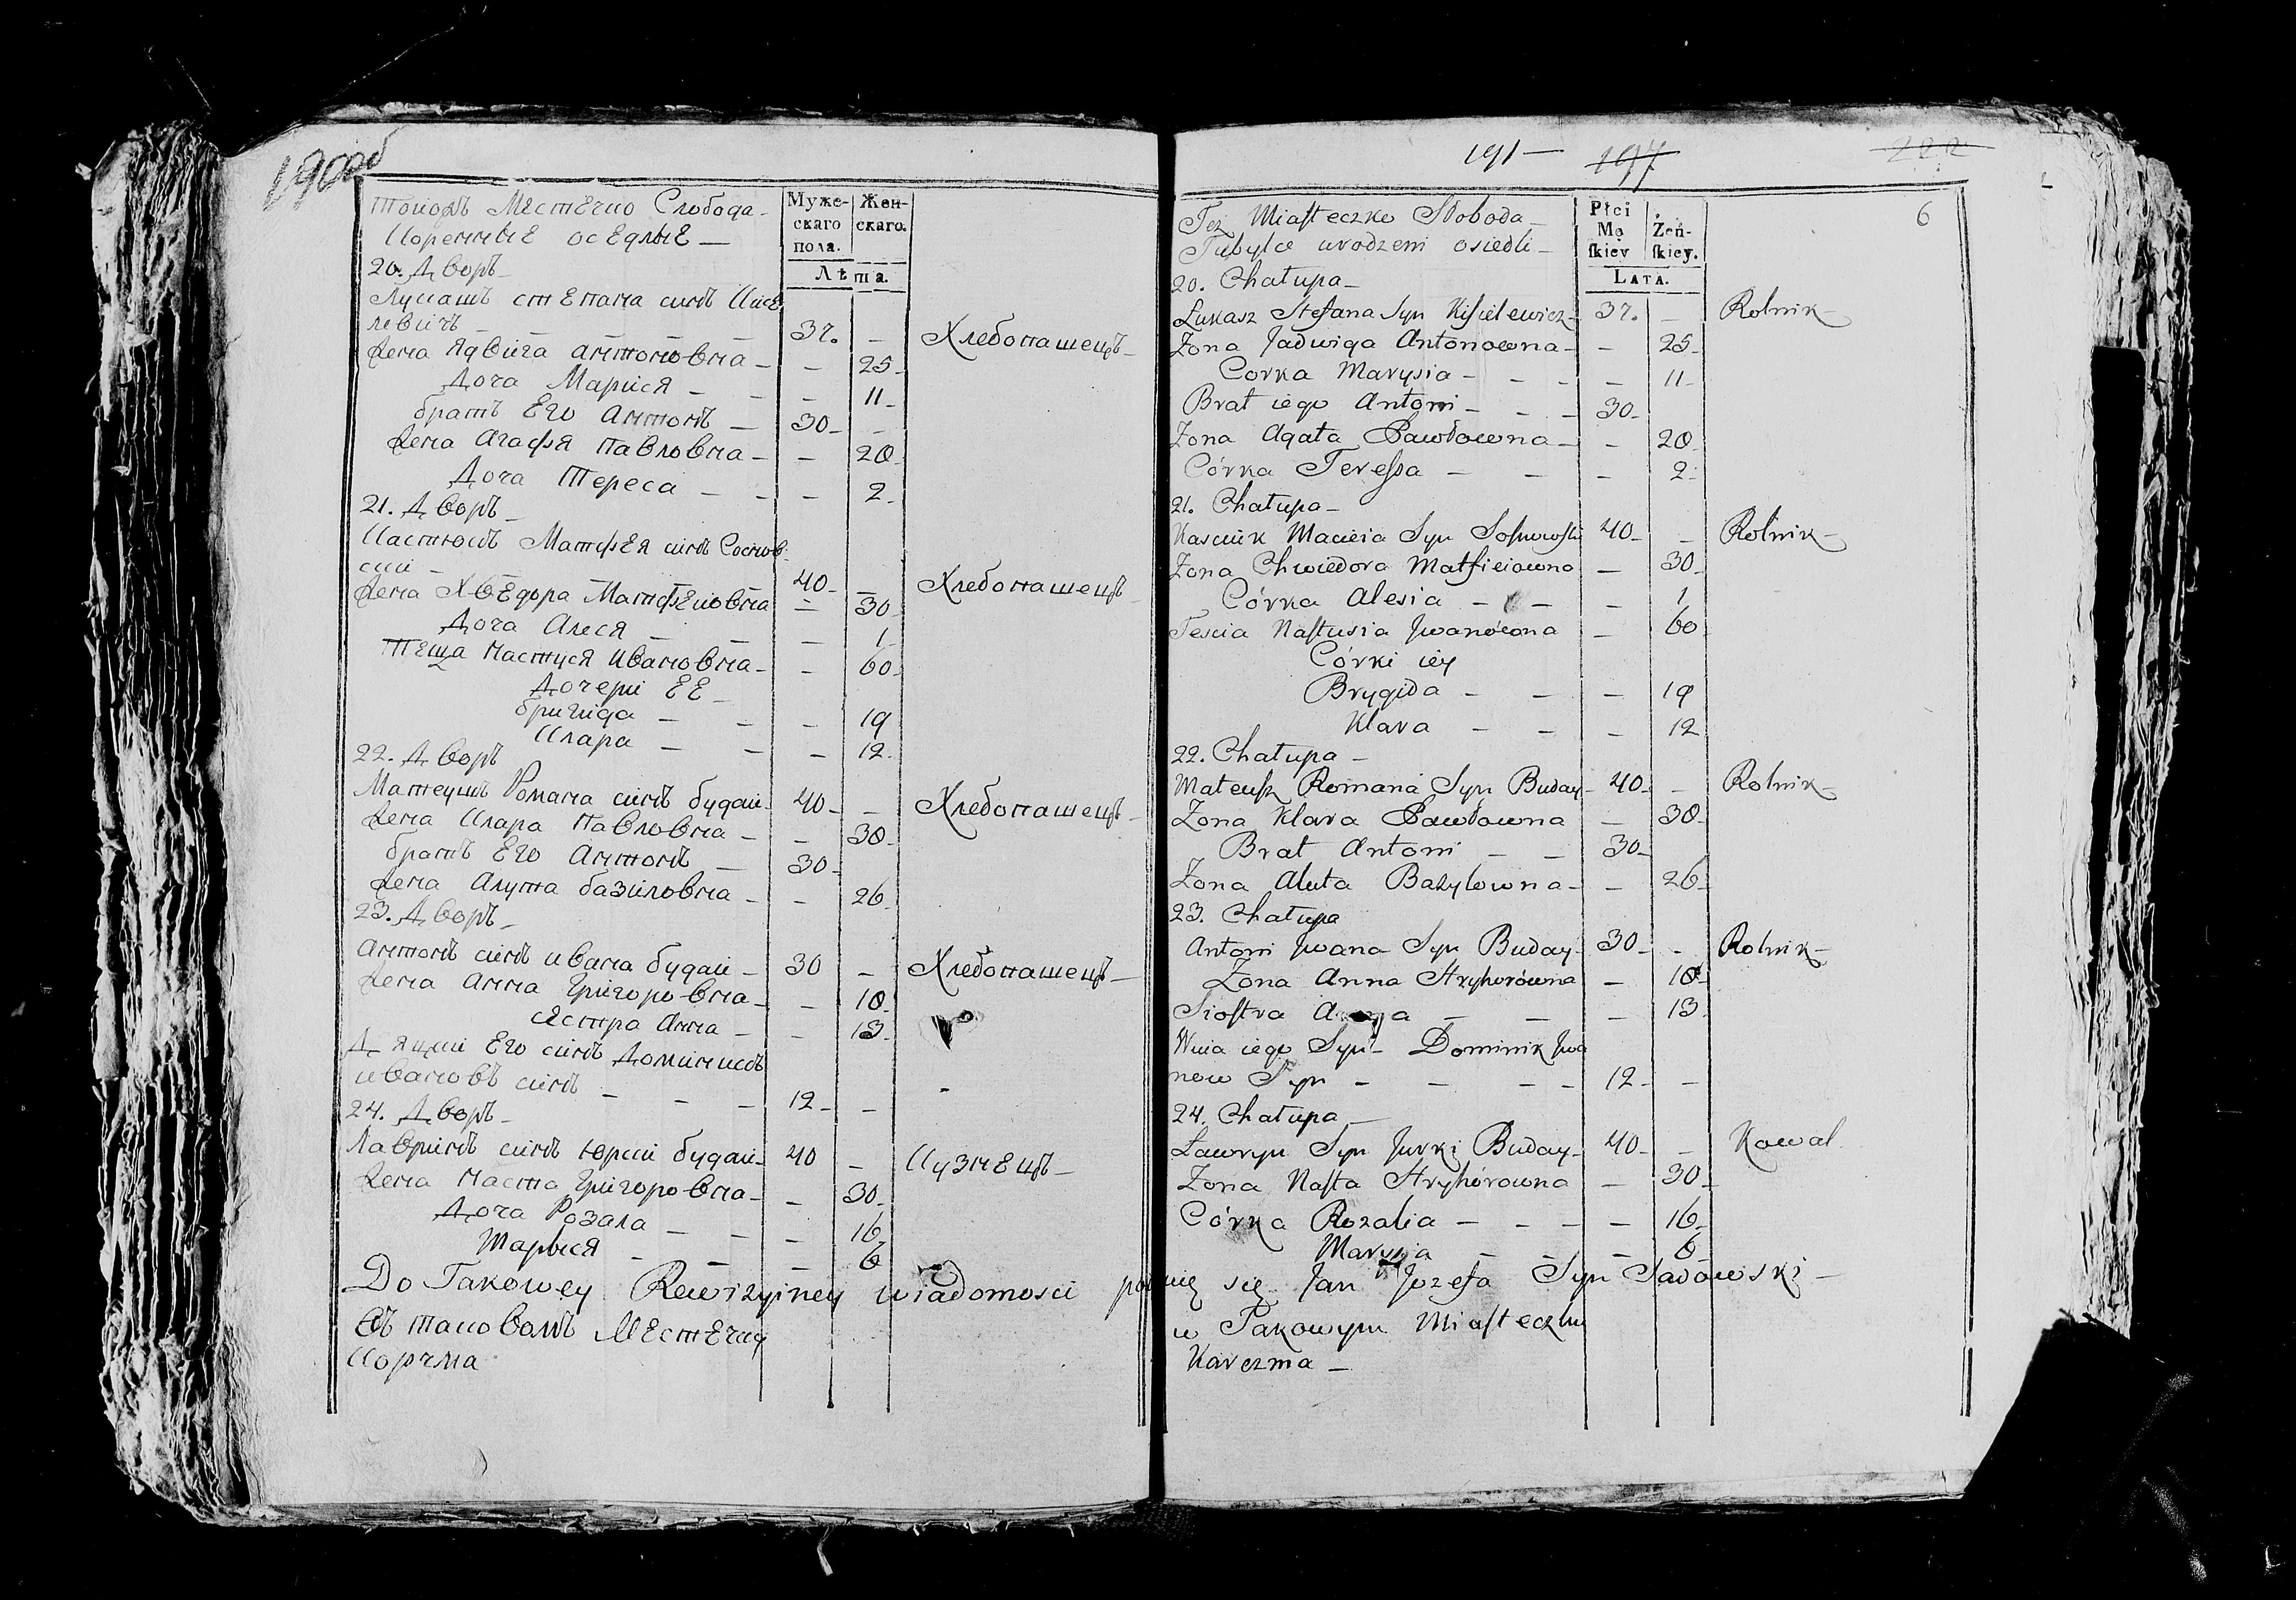 190об
Мужескаго пола.
Женскаго.
Лѣта.
Местечко Слобода
Коренные оседлые —
20. Дворъ
Лукашъ степана синъ Кисе
левичъ — 37. — Хлебопашецъ
Жена Ядвига антоновна — — 25
Доча Марися — — 11
братъ Его Антонъ — 30 —
Жена Агафія Павловна — — 20
Доча Тереса — — 2
21. Дворъ
Матфея синъ Соснов
ски — 40 — Хлебопашецъ
Жена Хведора Матфеиовна — 30
Доча Алеся — — 1
Теща Настуся Ивановна — — 60
Дочери ЕЕ
бригида — — 19
Клара — — 12
22. Дворъ
Матеушъ Романа синъ будаи 40 — Хлебопашецъ
Жена Клара Павловна — — 30
братъ Его Антонъ — 30
Жена Алута базиловна — — 26
23. Дворъ
Антонъ синъ ивана будаи — 30 — Хлебопашецъ
Жена Анна Григоровна — — 18
Сестра Анна — — 13
Его синъ Доминикъ
ивановъ синъ — — — 12 —
24. Дворъ
Лавринъ синъ Юрки будаи 40 — Кузнецъ
Жена Наста Григоровна — — 30
Доча Розала — — 16
Марыся — — 6
Do Takowey Rewizyiney wiadomosci
Въ таковомъ Местечку
Корчма
191 —
197
222
6
Płci Męskiey
Żeńskiey.
Lata.
Też Miasteczko Słoboda —
Tubylce urodzeni osiedli —
20. Chałupa —
Łukasz Stefana Syn Kisielewicz 37. — Rolnik
Zona Jadwiga Antonowna — — 25
Corka Marysia — — — 11
Brat iego Antoni — — 30
Zona Agata Pawłowna — — 20
Córka Teressa — — — 2
21. Chałupa —
Macieia Syn Sosnowski 40 — Rolnik
Zona Chwiedora Matfieiowna — 30
Córka Alesia — — — 1
Tescia Nastusia Jwanówna — 60
Córki iey
Brygida — — — 19
Klara — — — 12
22. Chałupa —
Mateusz Romana Syn Buday 40 — Rolnik
Zona Klara Pawłowna — 30
Brat Antoni — — 30
Zona Aluta Bazylowna — — 26
23. Chatupa
Antoni Jwana Syn Buday 30 — Rolnik
Zona Anna Hryhorówna — 18
Siostra — — — 13
Wuia iego Syn — Dominik Jwa
now Syn — — — 12 —
24. Chałupa —
Ławryn Syn Jurki Buday 40 — Kowal
Zona Nasta Hryhórowna — 30
Córka Rozalia — — — 16
Marysia — — — 6
się Jan Jozefa Syn Sadowski —
w Takowym Miasteczku
Karczma —